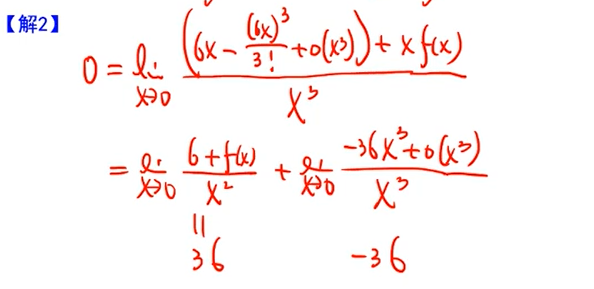 【解2】
0 = lim_{x→0} \frac{(6x - \frac{(6x)^3}{3!} + o(x^3)) + x f(x)}{x^3}
= lim_{x→0} \frac{6 + f(x)}{x^2} + lim_{x→0} \frac{-36x^3 + o(x^3)}{x^3}
||
36 -36